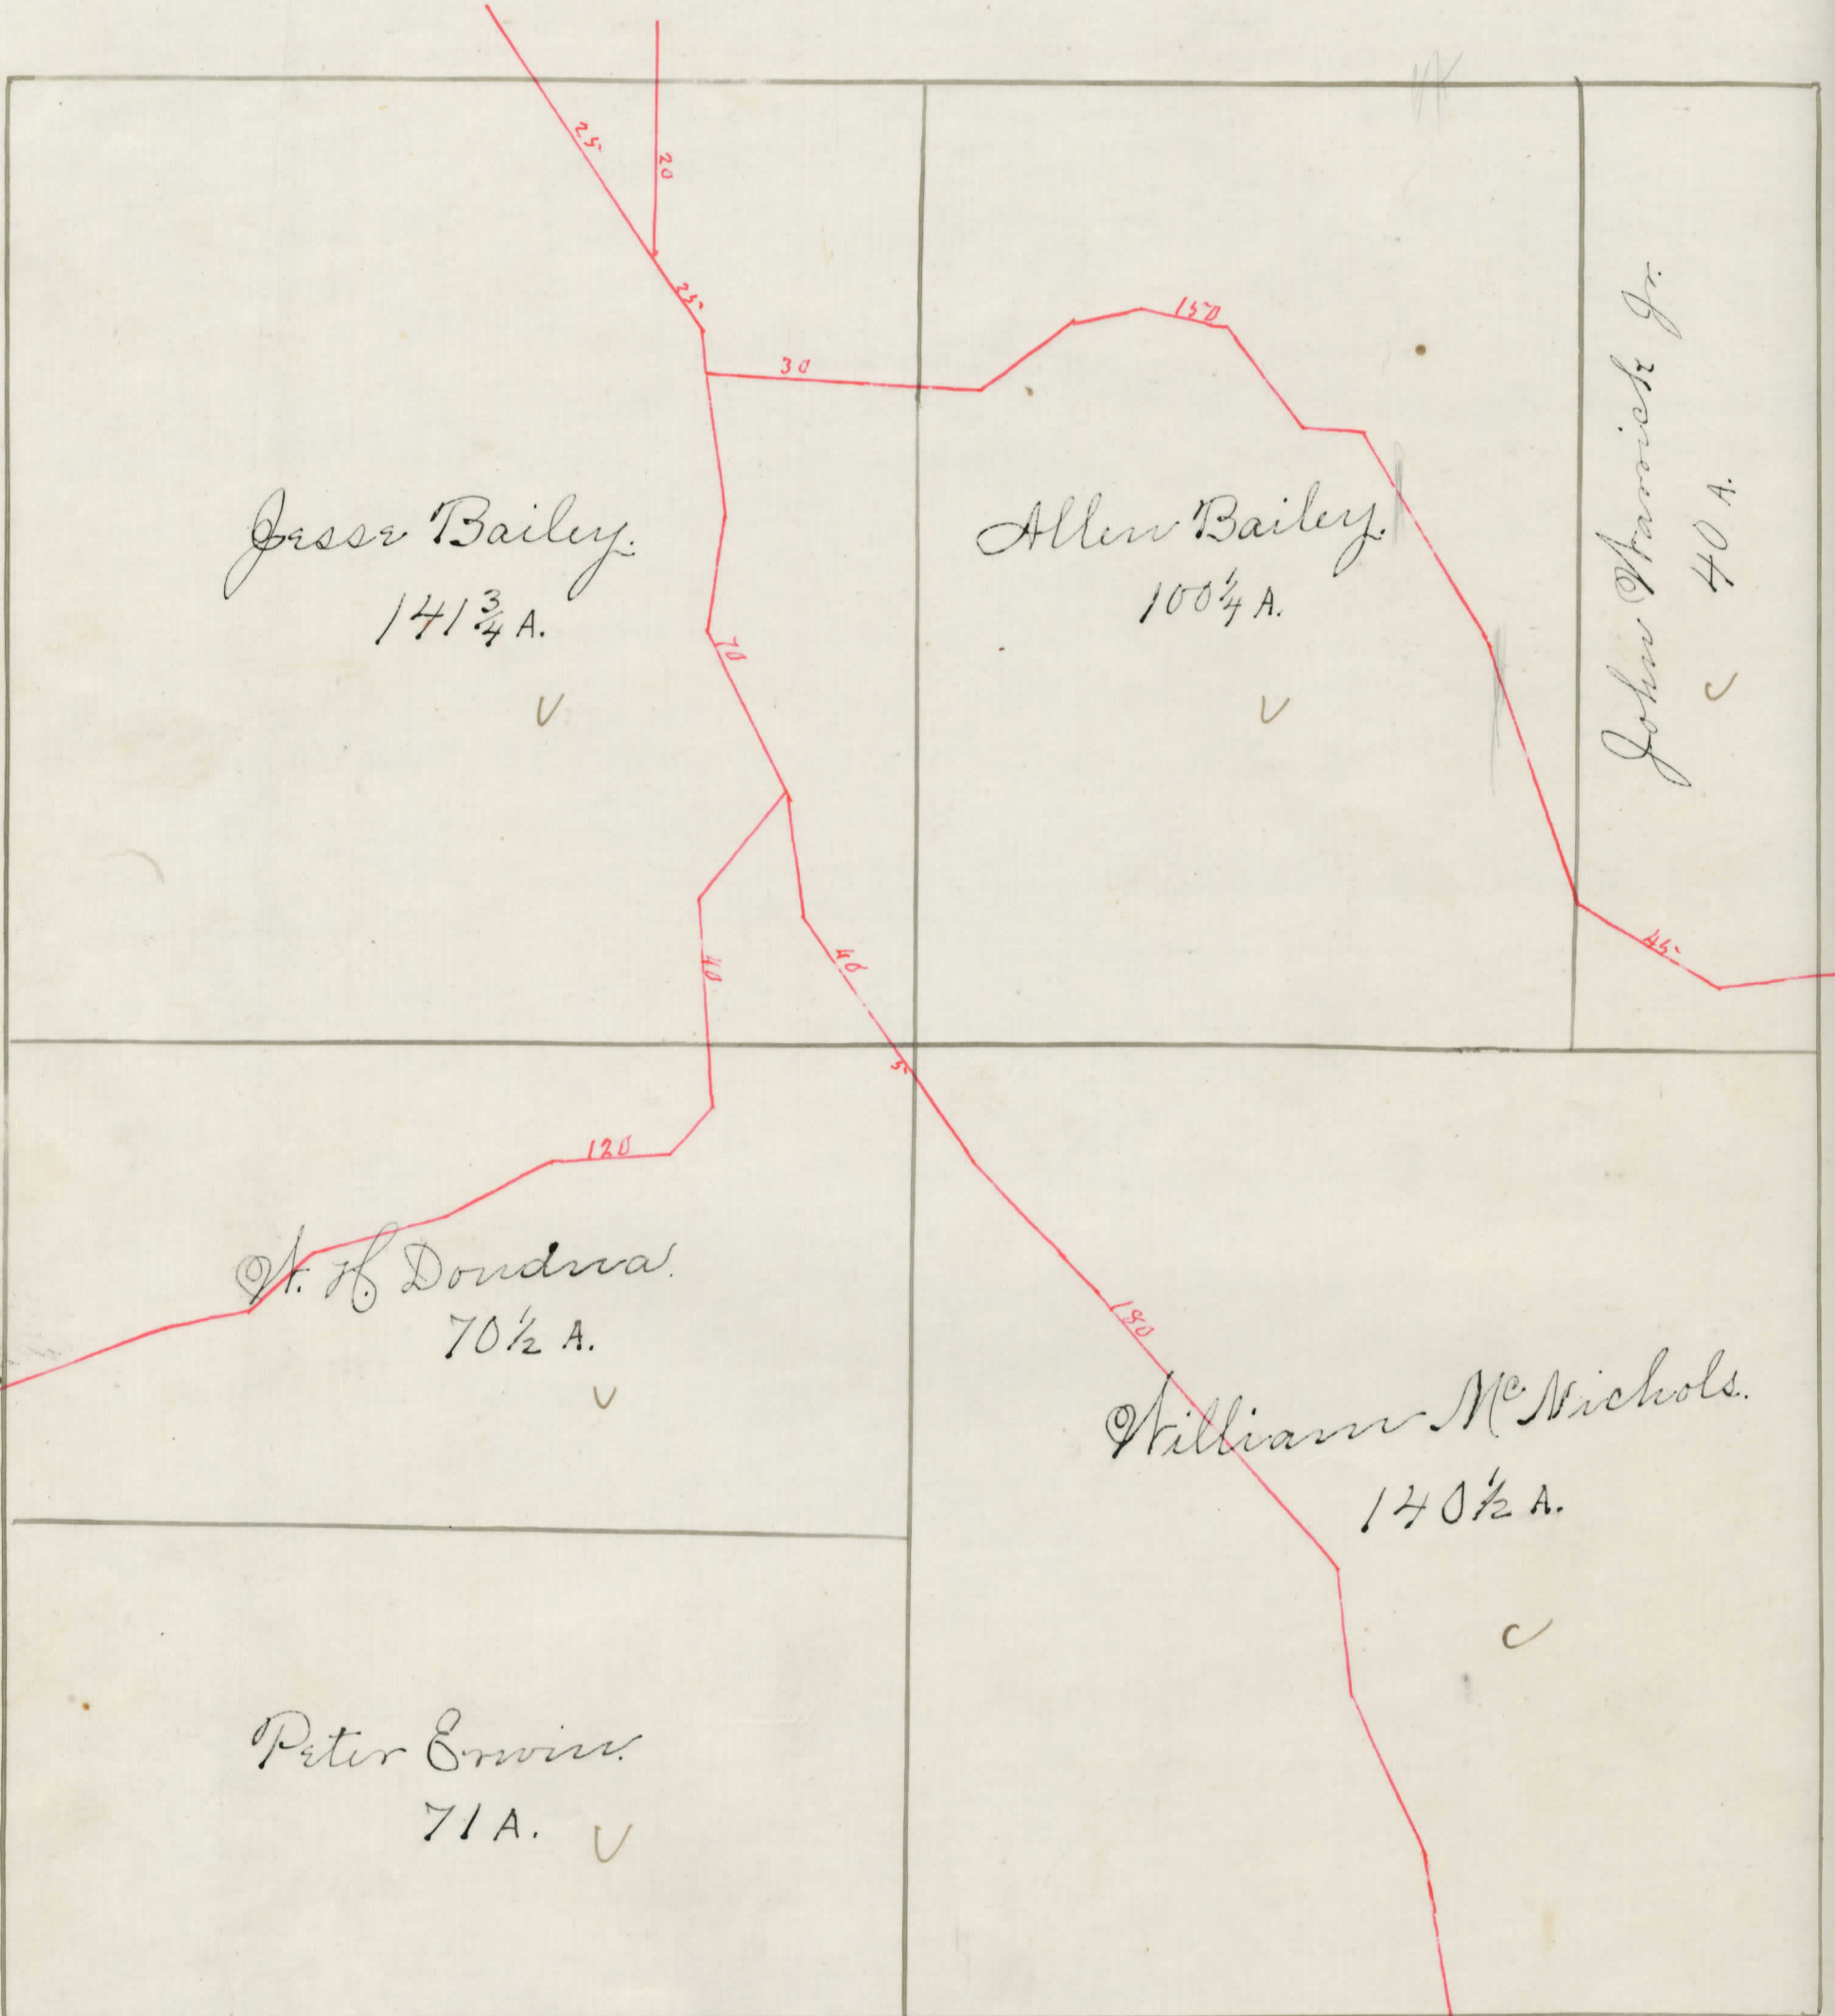 25
20
25
30
150
Jesse Bailey.
141 3/4 A.
70
Allen Bailey.
100 1/4 A.
John Warrick Jr.
40 A.
40
40
45
5
120
W. H. Doudna.
70 1/2 A.
180
William Mc Nichols.
140 1/2 A.
Peter Erwin.
71 A.